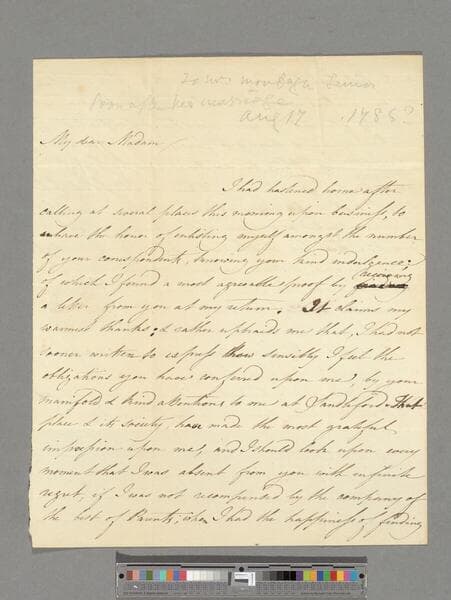 to Mrs. Montagu Senior
soon after her marriage
Aug 17 1785?
My dear Madam
I had hastened home after
calling at several places this morning upon business, to
have the honor of enlisting myself amongst the number
of your correspondents, knowing your kind indulgence;
of which I found a most agreeable proof by receiving
a letter from you at my return. It claims my
warmest thanks; & rather upbraids me that, I had not
sooner written to express how sensibly I feel the
obligations you have conferred upon me, by your
manifold & kind attentions to me at Sandleford. That
place & its Society, have made the most grateful
impression upon me, and I should look upon every
moment that I was absent from you with infinite
regret, if I was not recompensed by the company of
the best of Parents; when I had the happiness of finding